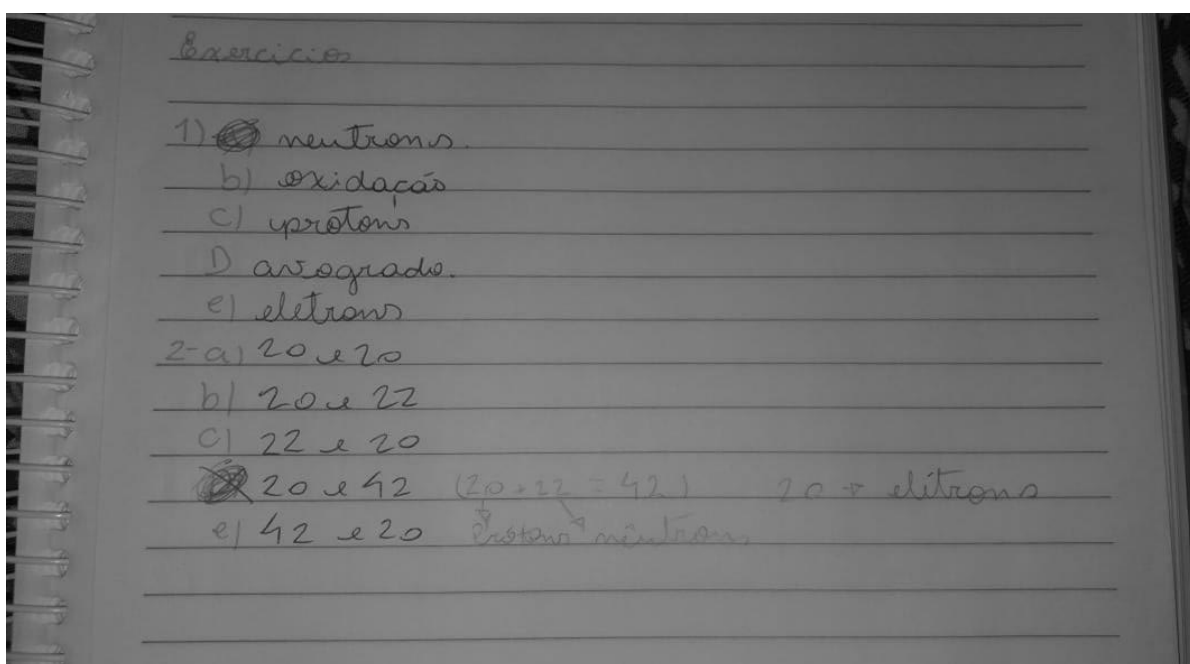 Exercicios
1) neutrons.
b) oxidação
c) protons
D avogrado.
e) eletrons
2-a) 20 e 20
b) 20 e 22
c) 22 e 20
20 e 42 (20+22 = 42) 20 → elétrons
e) 42 e 20 Protons nêutrons